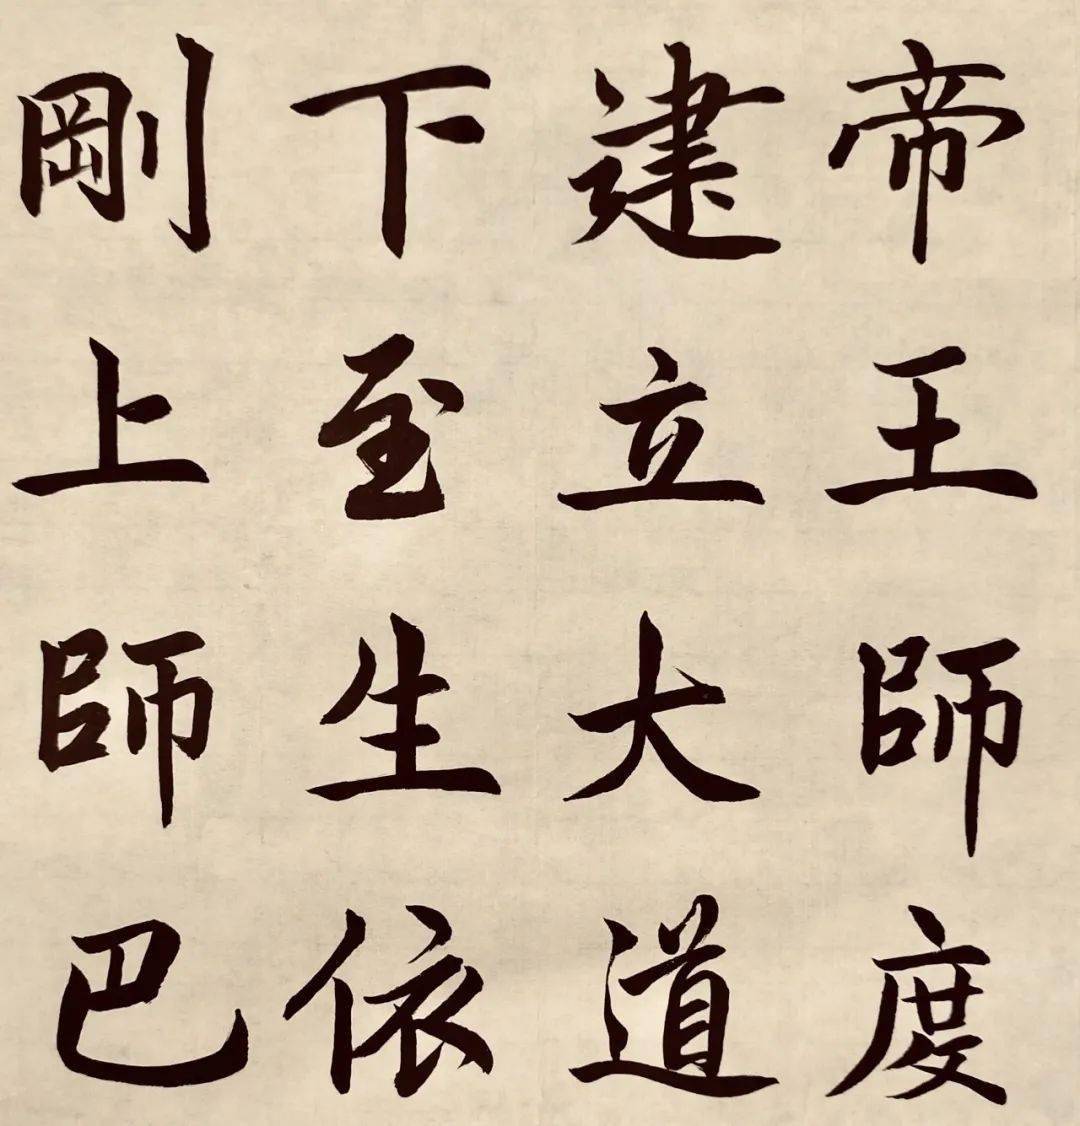 帝王師度
建立大道
下至生依
剛上師巴